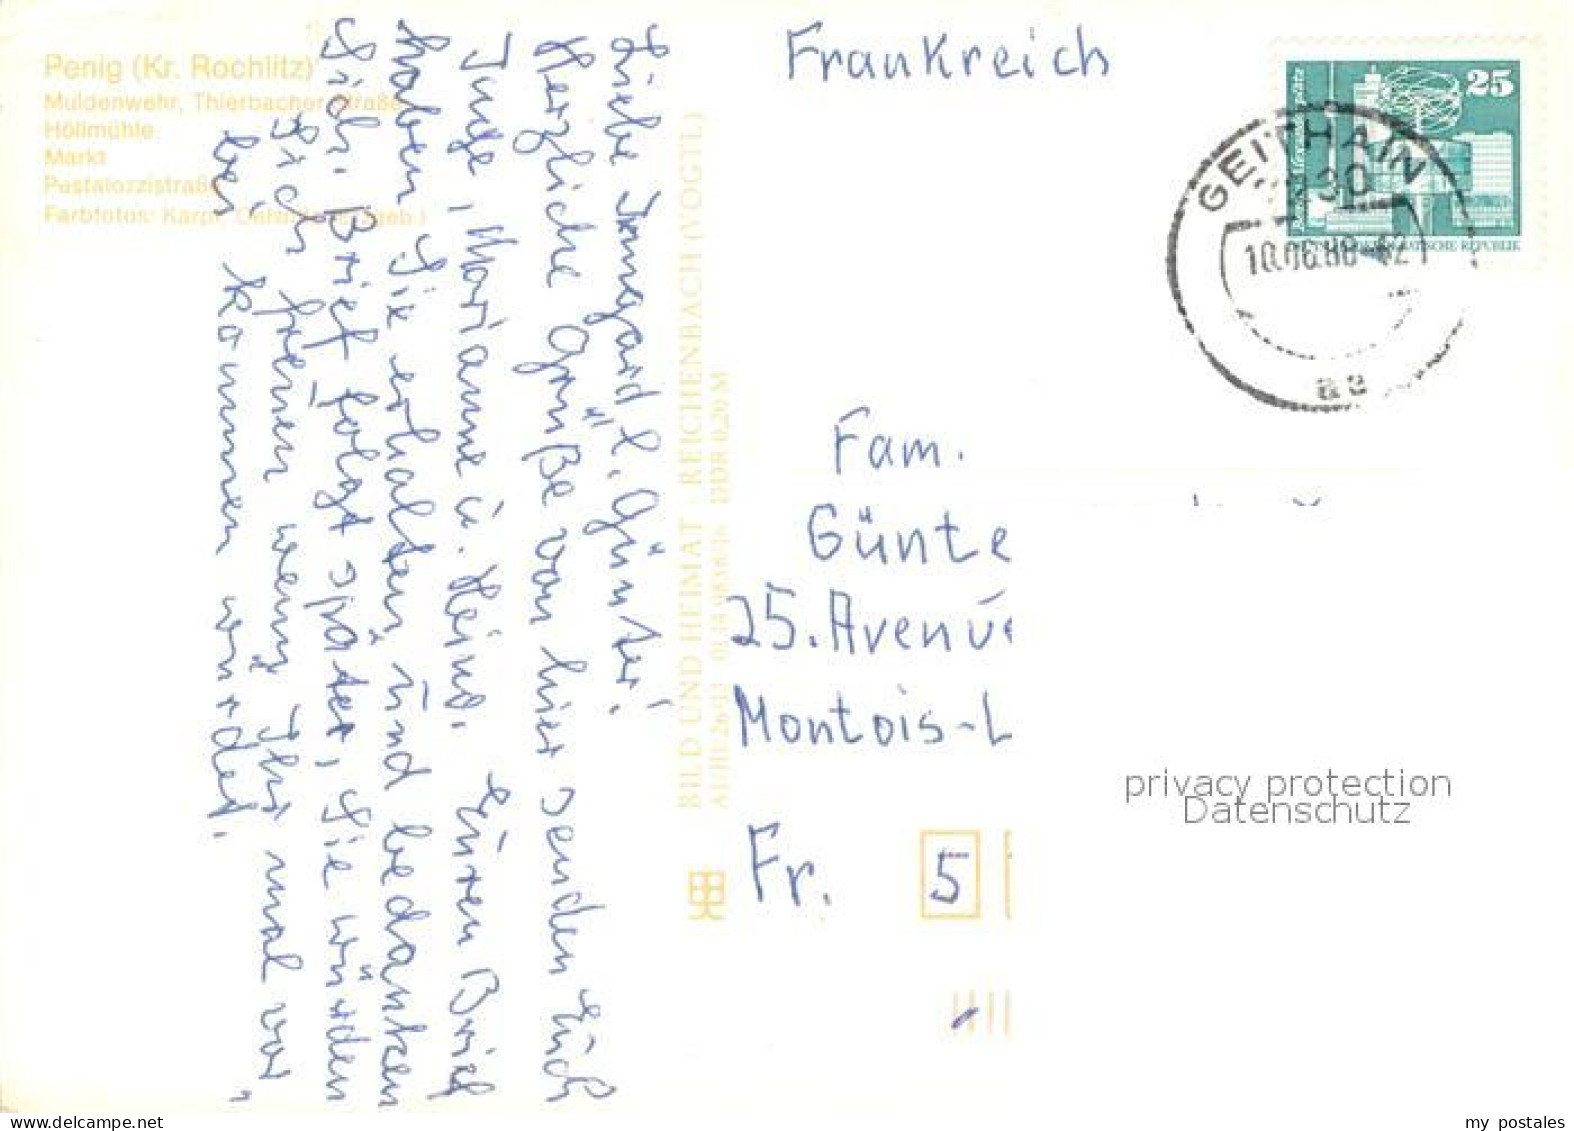 Penig (Kr. Rochlitz)
Muldenwehr, Thierbacher Straße
Höllmühle
Markt
Pestalozzistraße
Farbfotos: Karpf,
Liebe Irmgard, l. Günter!
Herzliche Grüße von hier senden Euch
Inge, Marianne u. Heinz. Euren Brief
haben Sie erhalten und bedanken
sich. Brief folgt später, Sie würden
sich freuen wenn Ihr mal vor-
bei kommen würdet.
BILD UND HEIMAT REICHENBACH (VOGTL)
DDR 0,20 M
Frankreich
25
GEITHAIN
DEMOKRATISCHE REPUBLIK
Fam.
Günte
25. Avenue
Montois-L
Fr. 5
privacy protection
Datenschutz
my postales